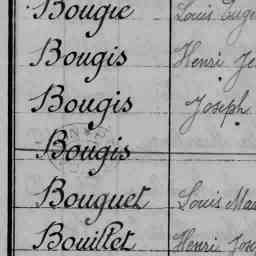 Bougie Louis
Bougis Henri
Bougis Joseph
Bougis
Bouguet Louis
Bouillet Henri